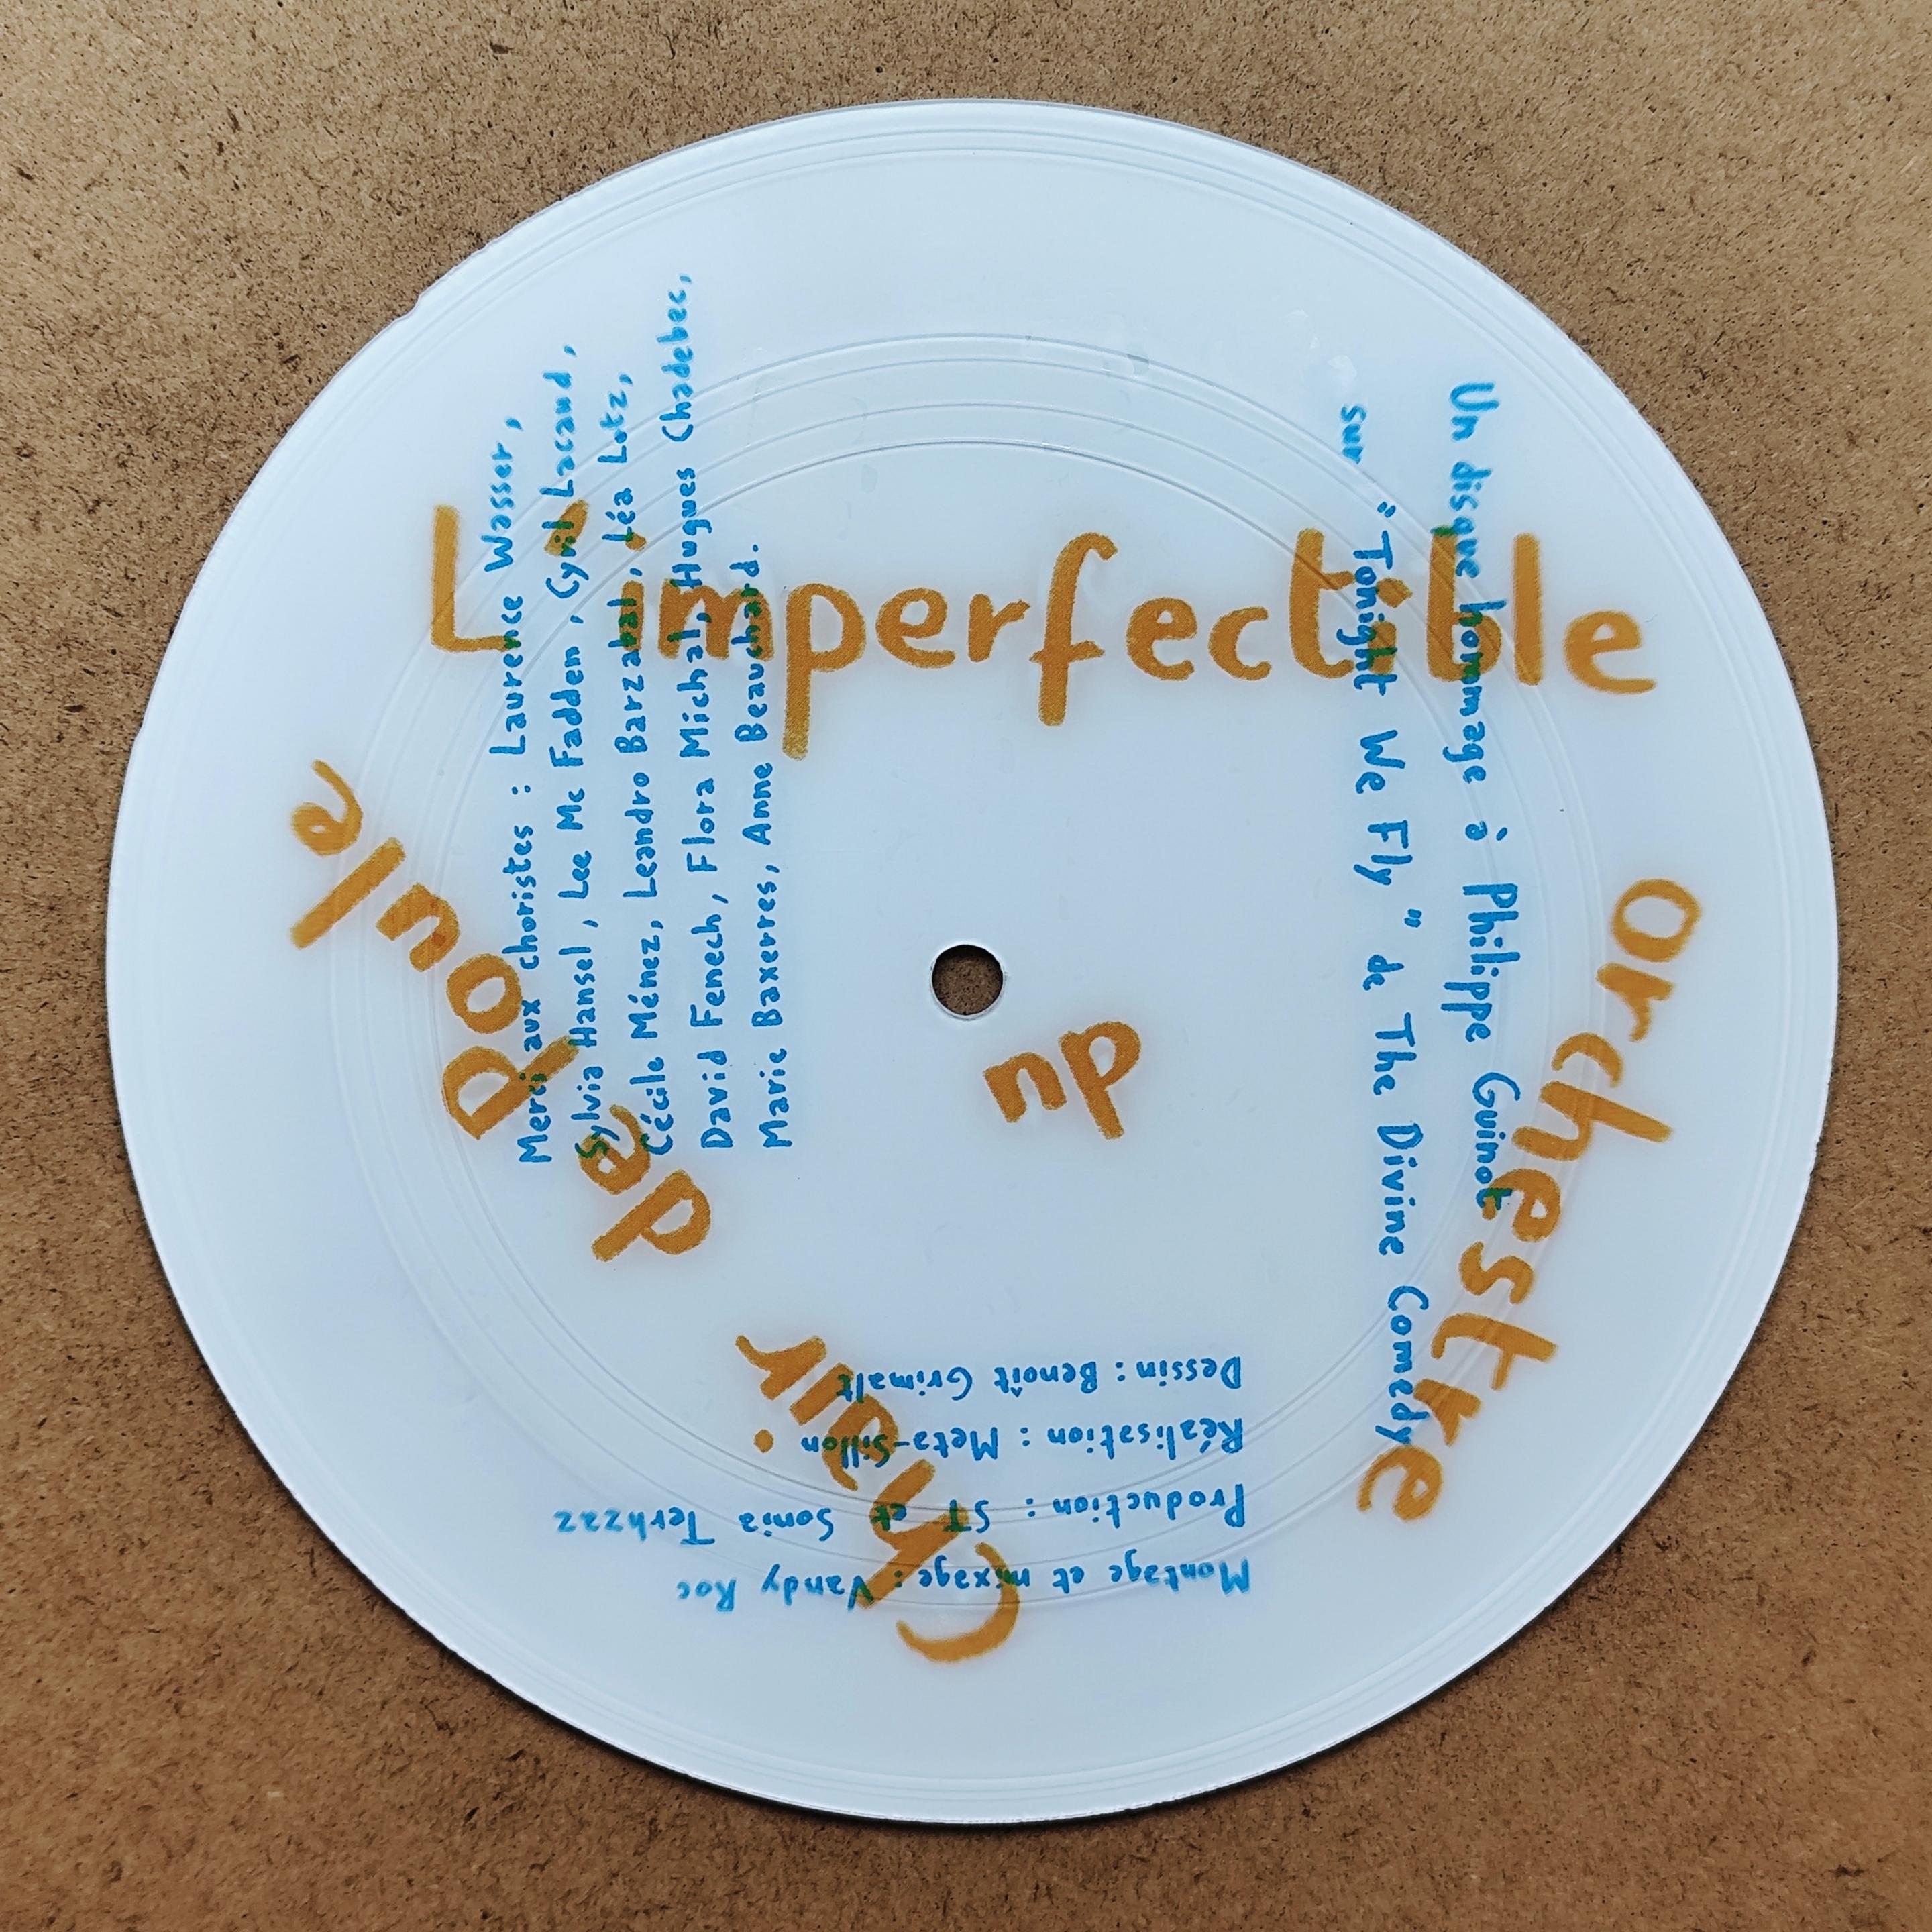 L'imperfectible
orchestre
du
Chair.
de
poule
Un disque hommage à Philippe Guinot
sur "Tonight We Fly" de The Divine Comedy
Merci aux choristes : Laurence Wasser,
Sylvia Hansel, Lee Mc Fadden, Cyril Lacaud,
Cécile Ménez, Leandro Barzabal, Léa Lotz,
David Fenech, Flora Michal, Hugues Chadebec,
Marie Baxerres, Anne Beauchard.
Montage et mixage : Vandy Roc
Production : ST et Sonia Terhzaz
Réalisation : Meta-Sillon
Dessin : Benoît Grimalt